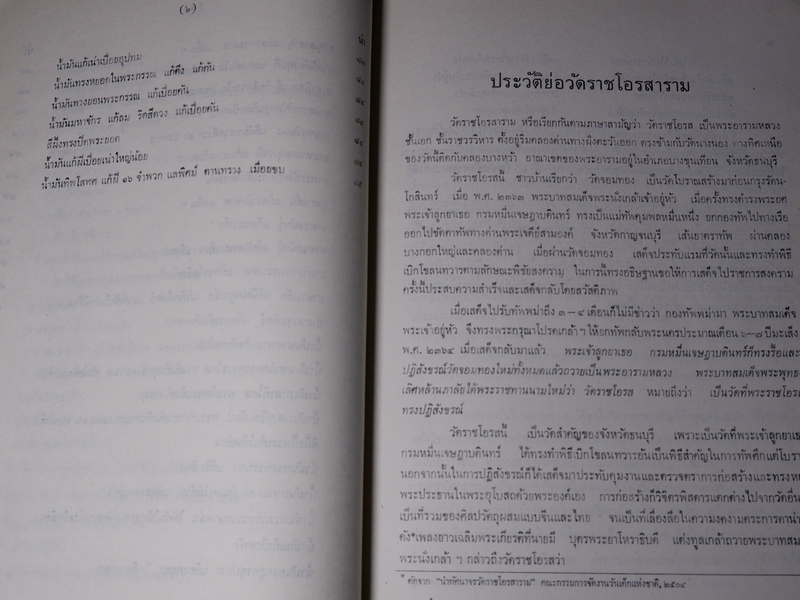 (๖)
น้ำมันแก้เน่าเปื่อยอุปทม
น้ำมันทรงหยอดในพระกรรณ แก้ตึง แก้คัน
น้ำมันทรงยอนพระกรรณ แก้เปื่อยคัน
น้ำมันมหาจักร แก้ลม ริดสีดวง แก้เปื่อยคัน
สีผึ้งทรงปิดพระยอด
น้ำมันแก้ฝีเปื่อยเน่าใหญ่น้อย
น้ำมันทิพโสฬศ แก้ฝี ๑๖ จำพวก แลพิศม์ คานทราง เมื่อยขบ
ประวัติย่อวัดราชโอรสาราม
วัดราชโอรสาราม หรือเรียกกันตามภาษาสามัญว่า วัดราชโอรส เป็นพระอารามหลวง
ชั้นเอก ชั้นราชวรวิหาร ตั้งอยู่ริมคลองด่านทางฝั่งตะวันออก ตรงข้ามกับวัดนางนอง ทางทิศเหนือ
ของวัดนี้ติดกับคลองบางหว้า อาณาเขตของพระอารามอยู่ในอำเภอบางขุนเทียน จังหวัดธนบุรี
วัดราชโอรสนี้ ชาวบ้านเรียกว่า วัดจอมทอง เป็นวัดโบราณสร้างมาก่อนกรุงรัตน-
โกสินทร์ เมื่อ พ.ศ. ๒๓๖๓ พระบาทสมเด็จพระนั่งเกล้าเจ้าอยู่หัว เมื่อครั้งทรงดำรงพระยศ
พระเจ้าลูกยาเธอ กรมหมื่นเจษฎาบดินทร์ ทรงเป็นแม่ทัพคุมพลหมื่นหนึ่ง ยกกองทัพไปทางเรือ
ออกไปขัดตาทัพทางด่านพระเจดีย์สามองค์ จังหวัดกาญจนบุรี เส้นยาตราทัพ ผ่านคลอง
บางกอกใหญ่และคลองด่าน เมื่อผ่านวัดจอมทอง เสด็จประทับแรมที่วัดนั้นและทรงทำพิธี
เบิกโขลนทวารตามลักษณะพิชัยสงคราม ในการนี้ทรงอธิษฐานขอให้การเสด็จไปราชการสงคราม
ครั้งนี้ประสบความสำเร็จและเสด็จกลับโดยสวัสดิภาพ
เมื่อเสด็จไปรับทัพพม่าถึง ๓–๔ เดือนก็ไม่มีข่าวว่า กองทัพพม่ามา พระบาทสมเด็จ
พระเจ้าอยู่หัว จึงทรงพระกรุณาโปรดเกล้าฯ ให้ยกทัพกลับพระนครประมาณเดือน ๖–๗ ปีมะเส็ง
พ.ศ. ๒๓๖๔ เมื่อเสด็จกลับมาแล้ว พระเจ้าลูกยาเธอ กรมหมื่นเจษฎาบดินทร์ก็ทรงรื้อและ
ปฏิสังขรณ์วัดจอมทองใหม่ทั้งหมดแล้วถวายเป็นพระอารามหลวง พระบาทสมเด็จพระพุทธ
เลิศหล้านภาลัยได้พระราชทานนามใหม่ว่า วัดราชโอรส หมายถึงว่า เป็นวัดที่พระราชโอร
ทรงปฏิสังขรณ์
วัดราชโอรสนี้ เป็นวัดสำคัญของจังหวัดธนบุรี เพราะเป็นวัดที่พระเจ้าลูกยาเ
กรมหมื่นเจษฎาบดินทร์ ได้ทรงทำพิธีเบิกโขลนทวารอันเป็นพิธีสำคัญในการทัพศึกแต่โบรา
นอกจากนั้นในการปฏิสังขรณ์ก็ได้เสด็จมาประทับคุมงานและตรวจตราการก่อสร้างและทรงห
พระประธานในพระอุโบสถด้วยพระองค์เอง การก่อสร้างก็วิจิตรพิสดารแตกต่างไปจากวัดอื่น
เป็นที่รวมของศิลปวัตถุผสมแบบจีนและไทย จนเป็นที่เลื่องลือในความงดงามตระการตาน่า
ดัง*เพลงยาวเฉลิมพระเกียรติที่นายมี บุตรพระยาโหราธิบดี แต่งทูลเกล้าถวายพระบาทสม
พระนั่งเกล้า ฯ กล่าวถึงวัดราชโอรสว่า
* คัดจาก “นำทัศนาจรวัดราชโอรสาราม” คณะกรรมการจัดงานวันเด็กแห่งชาติ, ๒๕๐๔